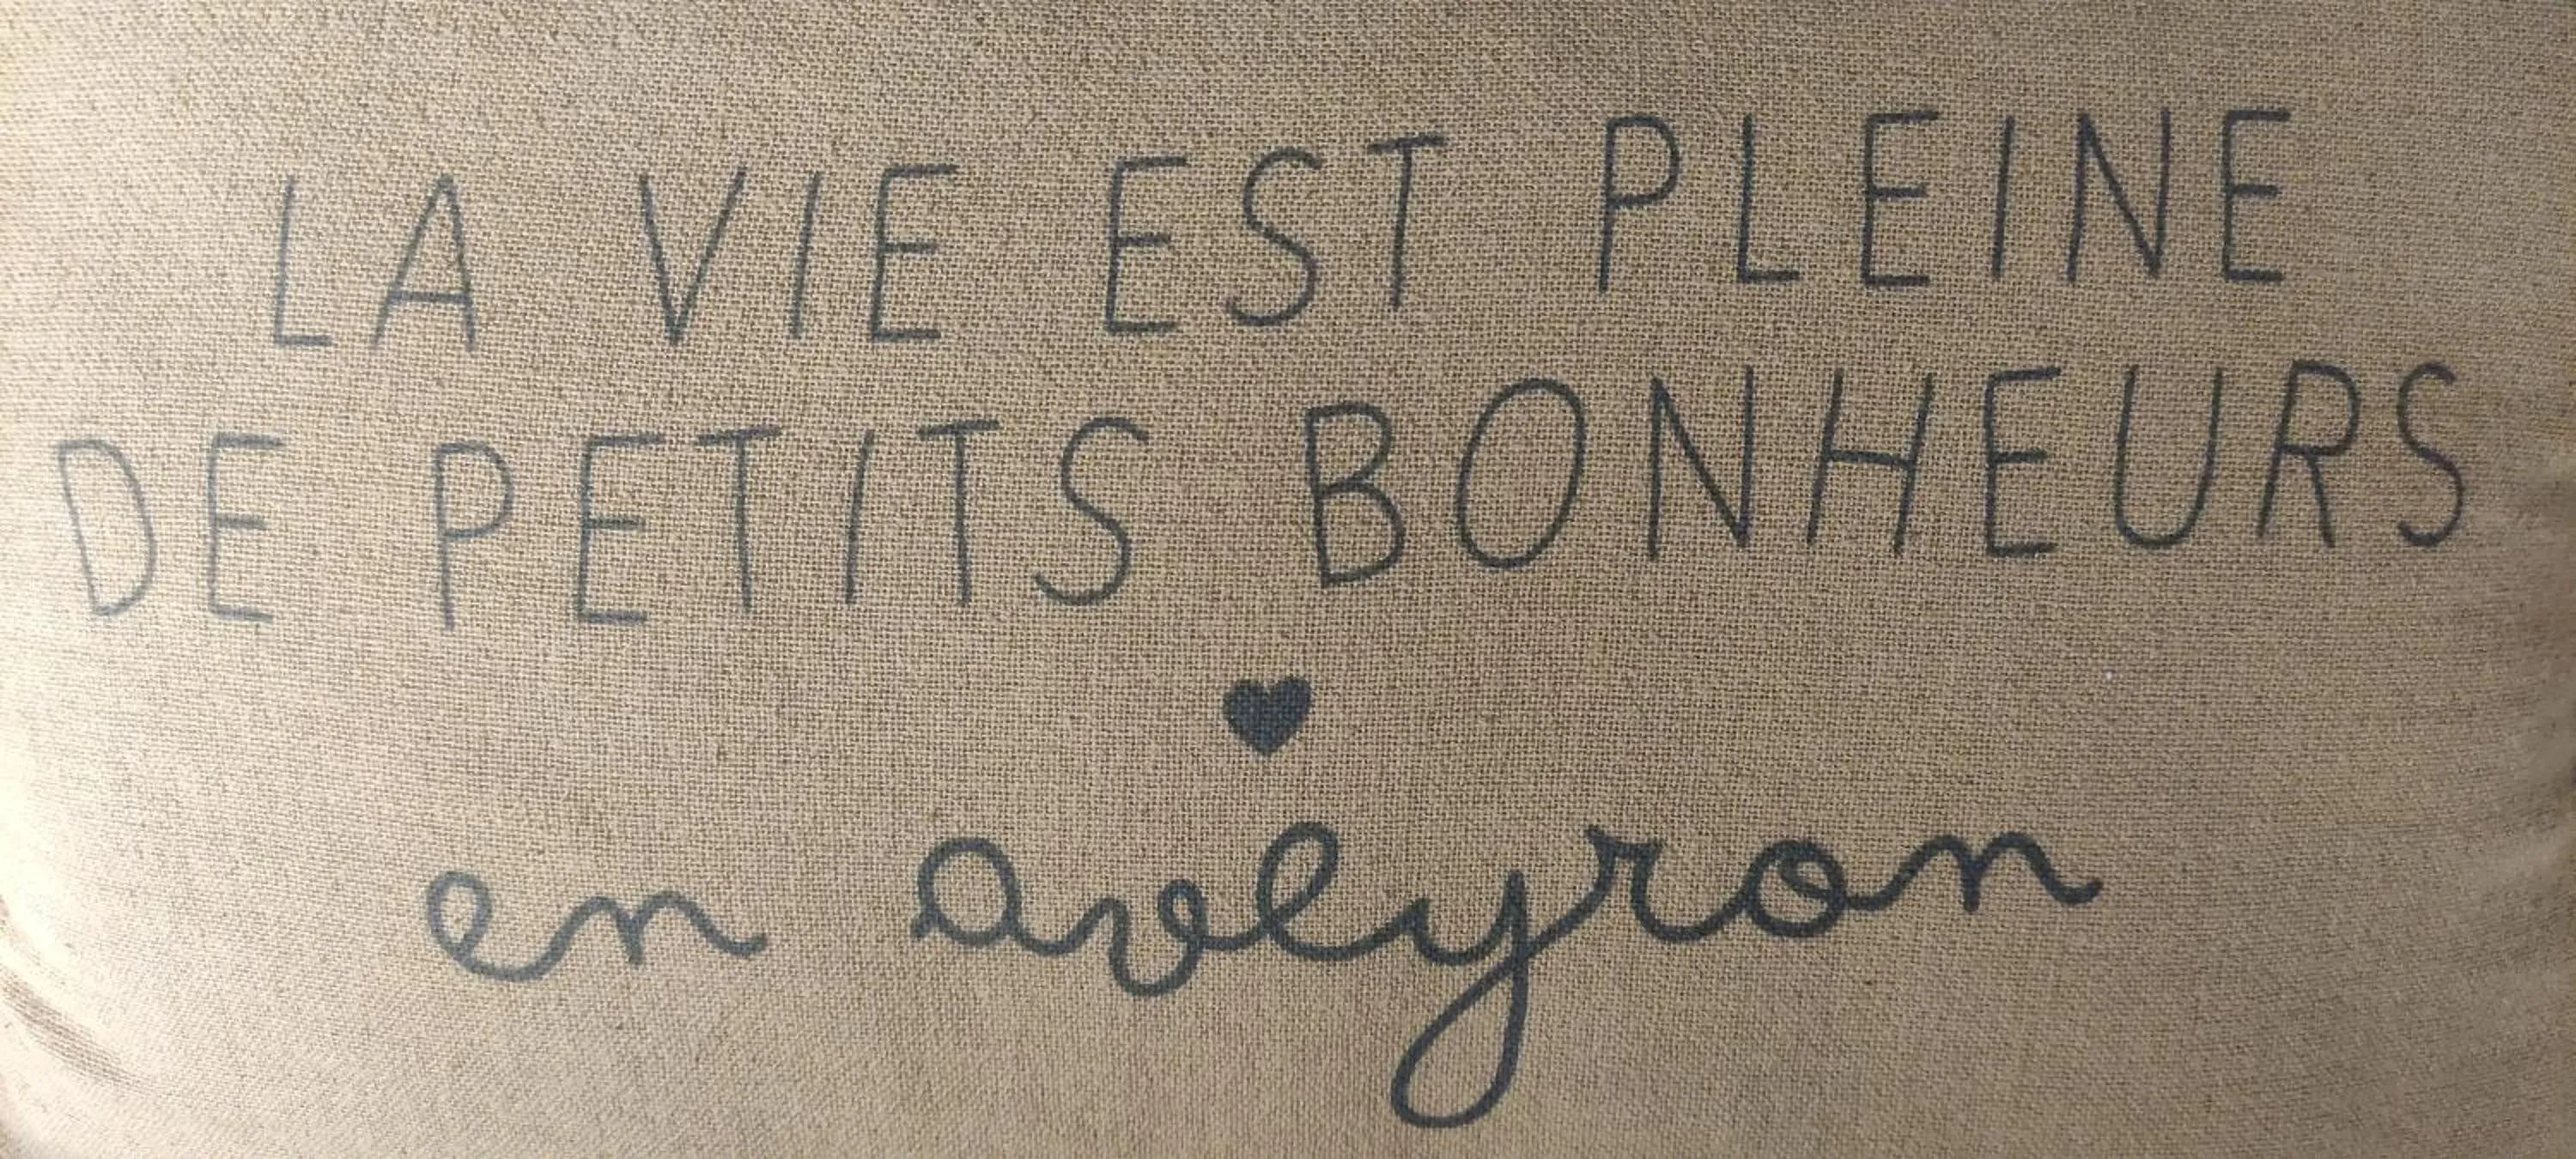 LA VIE EST PLEINE
DE PETITS BONHEURS
en aveyron